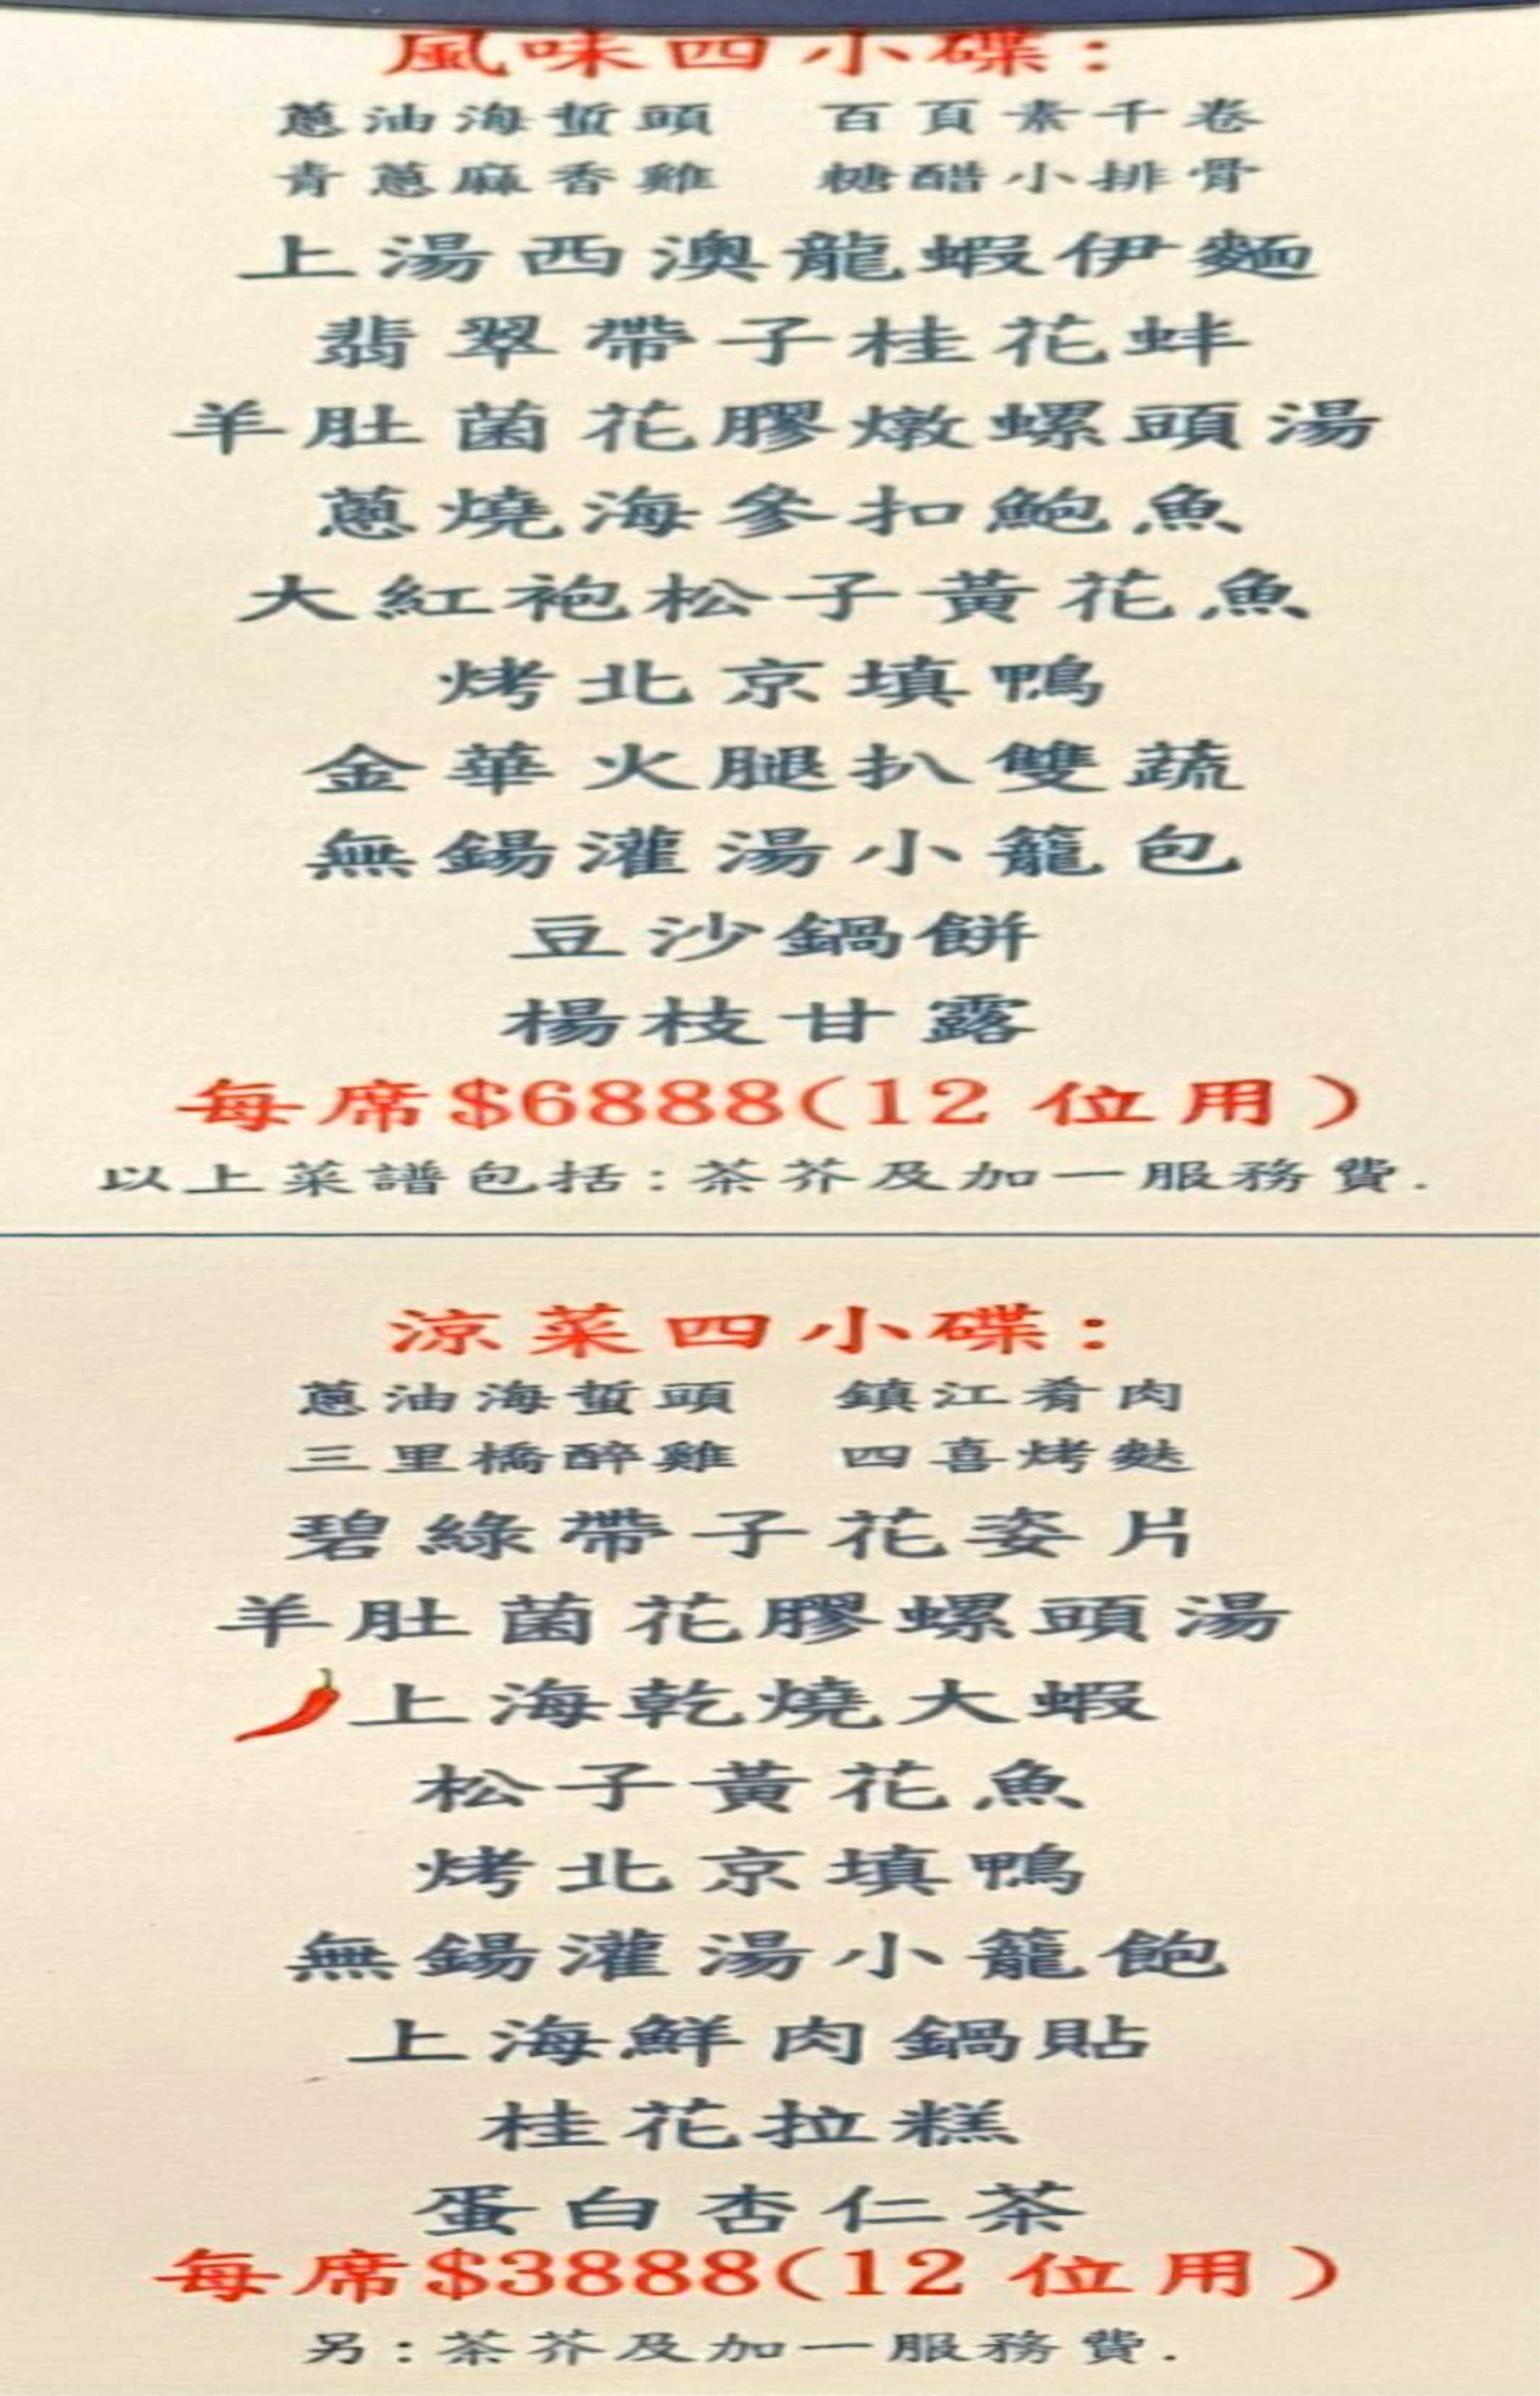 風味四小碟:
蔥油海蜇頭 百頁素千卷
青蔥麻香雞 糖醋小排骨
上湯西澳龍蝦伊麵
翡翠帶子桂花蚌
羊肚菌花膠燉螺頭湯
蔥燒海參扣鮑魚
大紅袍松子黃花魚
烤北京填鴨
金華火腿扒雙蔬
無錫灌湯小籠包
豆沙鍋餅
楊枝甘露
每席$6888(12位用)
以上菜譜包括:茶芥及加一服務費.
涼菜四小碟:
蔥油海蜇頭 鎮江肴肉
三里橋醉雞 四喜烤麩
碧綠帶子花姿片
羊肚菌花膠螺頭湯
上海乾燒大蝦
松子黃花魚
烤北京填鴨
無錫灌湯小籠飽
上海鮮肉鍋貼
桂花拉糕
蛋白杏仁茶
每席$3888(12位用)
另:茶芥及加一服務費.